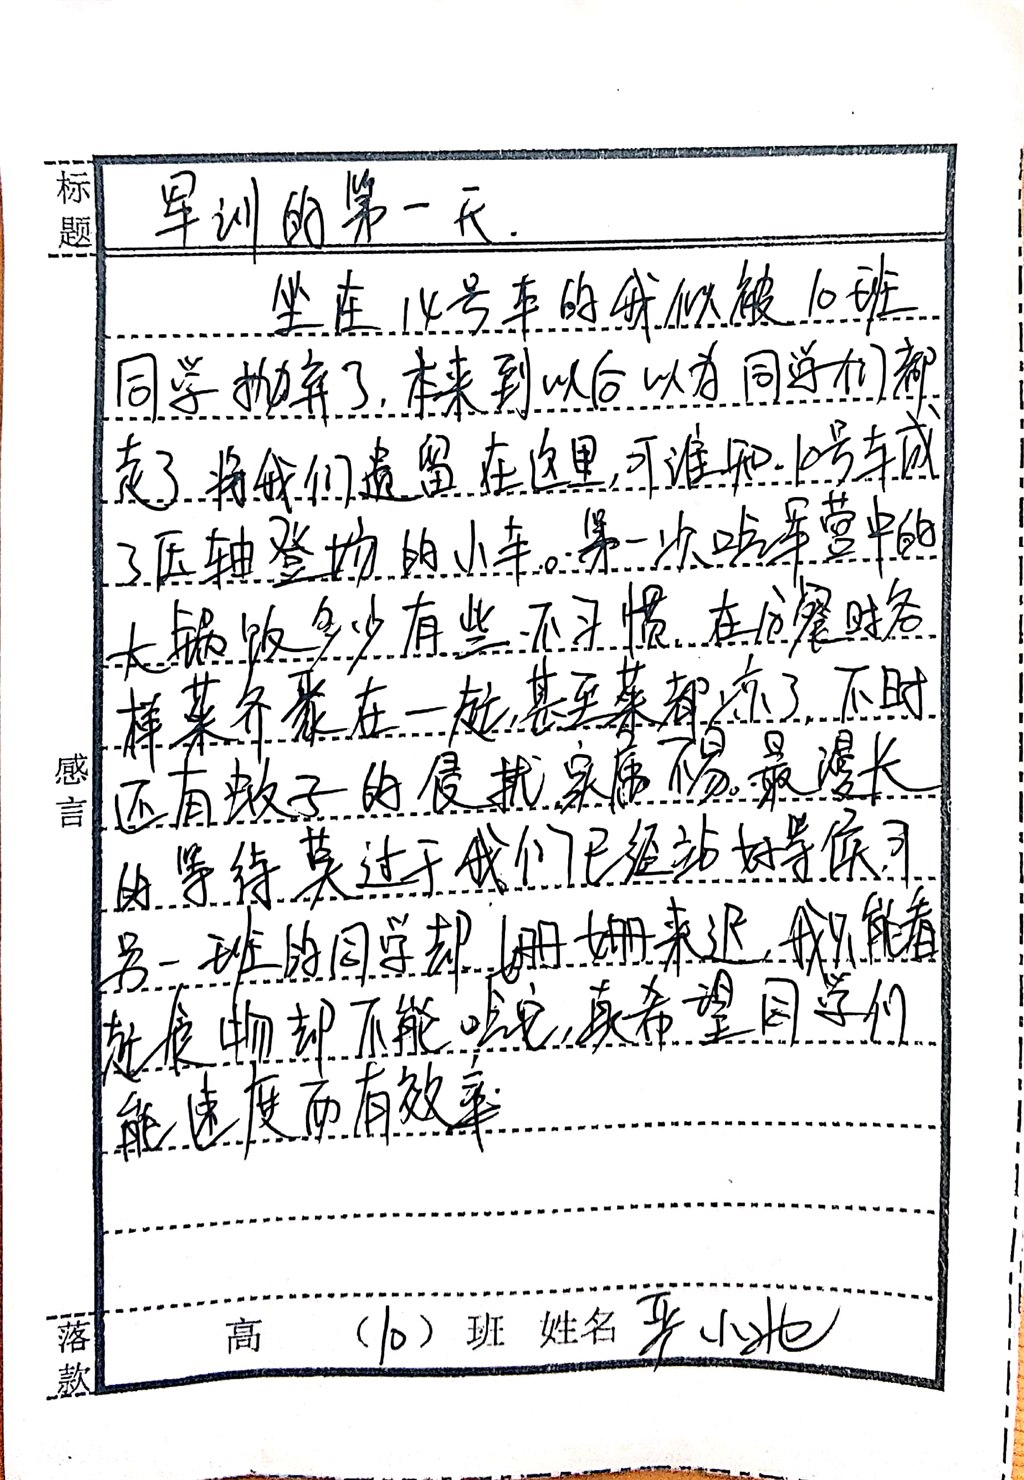 标题
军训的第一天.
坐在14号车的我似被10班
同学抛弃了,本来到以后以为同学们都
走了将我们遗留在这里,可谁知.10号车成
了压轴登场的小车。第一次吃军营中的
大锅饭多少有些不习惯.在分餐时各
样菜齐聚在一起,甚至菜都凉了,不时
还有蚊子的侵扰,实属不易。最漫长
的等待莫过于我们已经站好等候,可
另一班的同学却姗姗来迟,我只能看
起食物却不能吃它,真希望同学们
能速度而有效率
感言
落款
高 (10) 班 姓名